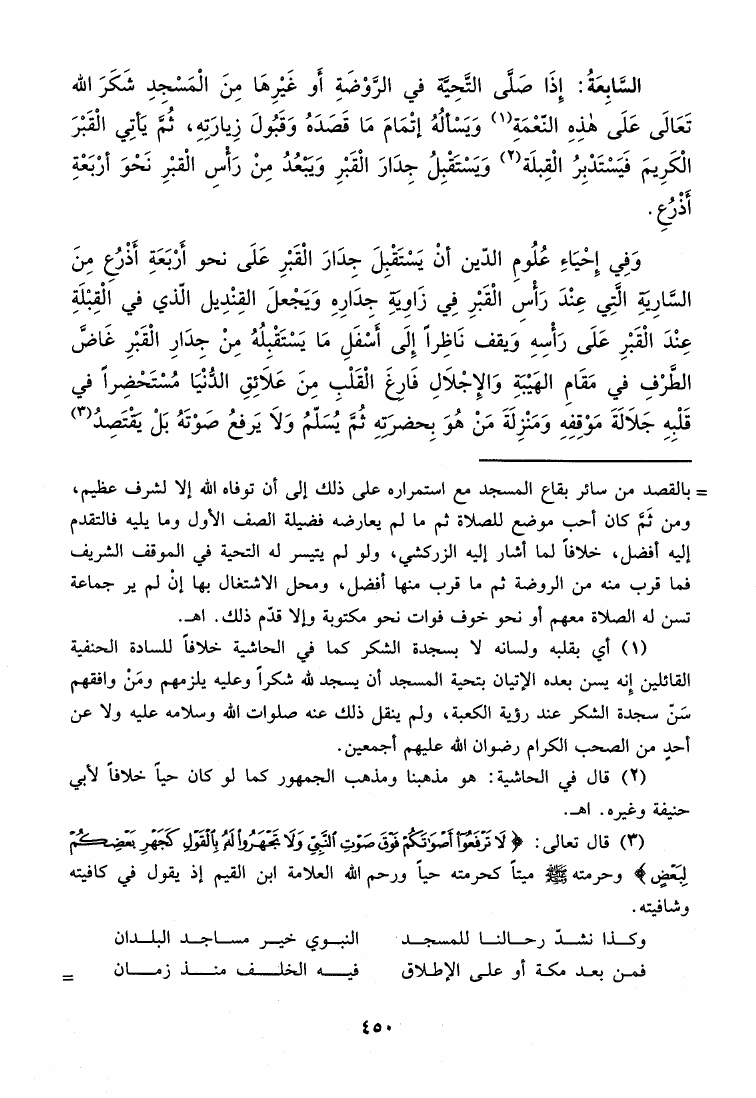 السَّابِعَةُ: إِذَا صَلَّى التَّحِيَّةَ في الرَّوْضَةِ أَو غَيْرِهَا مِنَ الْمَسْجِدِ شَكَرَ الله
تَعَالَى عَلَى هٰذِهِ النّعْمَةِ(١) وَيَسْأَلُهُ إتْمَامَ مَا قَصَدَهُ وَقَبُولَ زِيارَتِهِ، ثُمَّ يَأتي الْقَبْرَ
الْكَرِيمَ فَيَسْتَدْبِرُ الْقِبلَةَ(٢) وَيَسْتَقْبِلُ جِدَارَ الْقَبْرِ وَيَبْعُدُ مِنْ رَأْسِ القبْرِ نَحْوَ أرْبَعَةِ
أَذْرُعٍ.
وَفِي إحْيَاءِ عُلُومِ الدّين أنْ يَسْتَقْبِلَ جِدَارَ الْقَبْرِ عَلَى نحو أرْبَعَةِ أَذْرُعٍ مِنَ
السَّارِيَةِ الَّتِي عِنْدَ رَأْسِ الْقَبْرِ فِي زَاوِيَةِ جِدَارِهِ وَيَجْعلَ القِنْدِيلَ الّذي في الْقِبْلَةِ
عِنْدَ الْقَبْرِ عَلَى رَأْسِهِ وَيقف نَاظِراً إِلَى أَسْفَلِ مَا يَسْتَقْبِلُهُ مِنْ جِدَارِ الْقَبْرِ غَاضَّ
الطَّرْفِ في مَقَامِ الهَيْبَةِ وَالإِجْلالِ فَارِغَ الْقَلْبِ مِنَ عَلائِقِ الدُّنْيَا مُسْتَحْضِراً في
قَلْبِهِ جَلَالَةَ مَوْقِفِهِ وَمَنْزِلَةَ مَنْ هُوَ بِحضرَتِهِ ثُمَّ يُسَلّمُ وَلَا يَرفعُ صَوْتَهُ بَلْ يَقْتَصِدُ(٣)
= بالقصد من سائر بقاع المسجد مع استمراره على ذلك إلى أن توفاه الله إلا لشرف عظيم،
ومن ثَمَّ كان أحب موضع للصلاة ثم ما لم يعارضه فضيلة الصف الأول وما يليه فالتقدم
إليه أفضل، خلافاً لما أشار إليه الزركشي، ولو لم يتيسر له التحية في الموقف الشريف
فما قرب منه من الروضة ثم ما قرب منها أفضل، ومحل الاشتغال بها إنْ لم ير جماعة
تسن له الصلاة معهم أو نحو خوف فوات نحو مكتوبة وإلا قدّم ذلك. اهـ.
(١) أي بقلبه ولسانه لا بسجدة الشكر كما في الحاشية خلافاً للسادة الحنفية
القائلين إنه يسن بعده الإتيان بتحية المسجد أن يسجد لله شكراً وعليه يلزمهم ومَنْ وافقهم
سَنّ سجدة الشكر عند رؤية الكعبة، ولم ينقل ذلك عنه صلوات الله وسلامه عليه ولا عن
أحدٍ من الصحب الكرام رضوان الله عليهم أجمعين.
(٢) قال في الحاشية: هو مذهبنا ومذهب الجمهور كما لو كان حياً خلافاً لأبي
حنيفة وغيره. اهـ.
(٣) قال تعالى: ﴿لَا تَرْفَعُوٓا أَصْوَٰتَكُمْ فَوْقَ صَوْتِ ٱلنَّبِيِّ وَلَا تَجْهَرُوا لَهُۥ بِٱلْقَوْلِ كَجَهْرِ بَعْضِكُمْ
لِبَعْضٍ﴾ وحرمته ﷺ ميتاً كحرمته حياً ورحم الله العلامة ابن القيم إذ يقول في كافيته
وشافيته.
وكـذا نشـدّ رحـالنـا للمسجـد النبـوي خيـر مسـاجـد البلـدان
فمـن بعـد مكـة أو علـى الإطلاق فيـه الخلـف منـذ زمـان =
٤٥٠